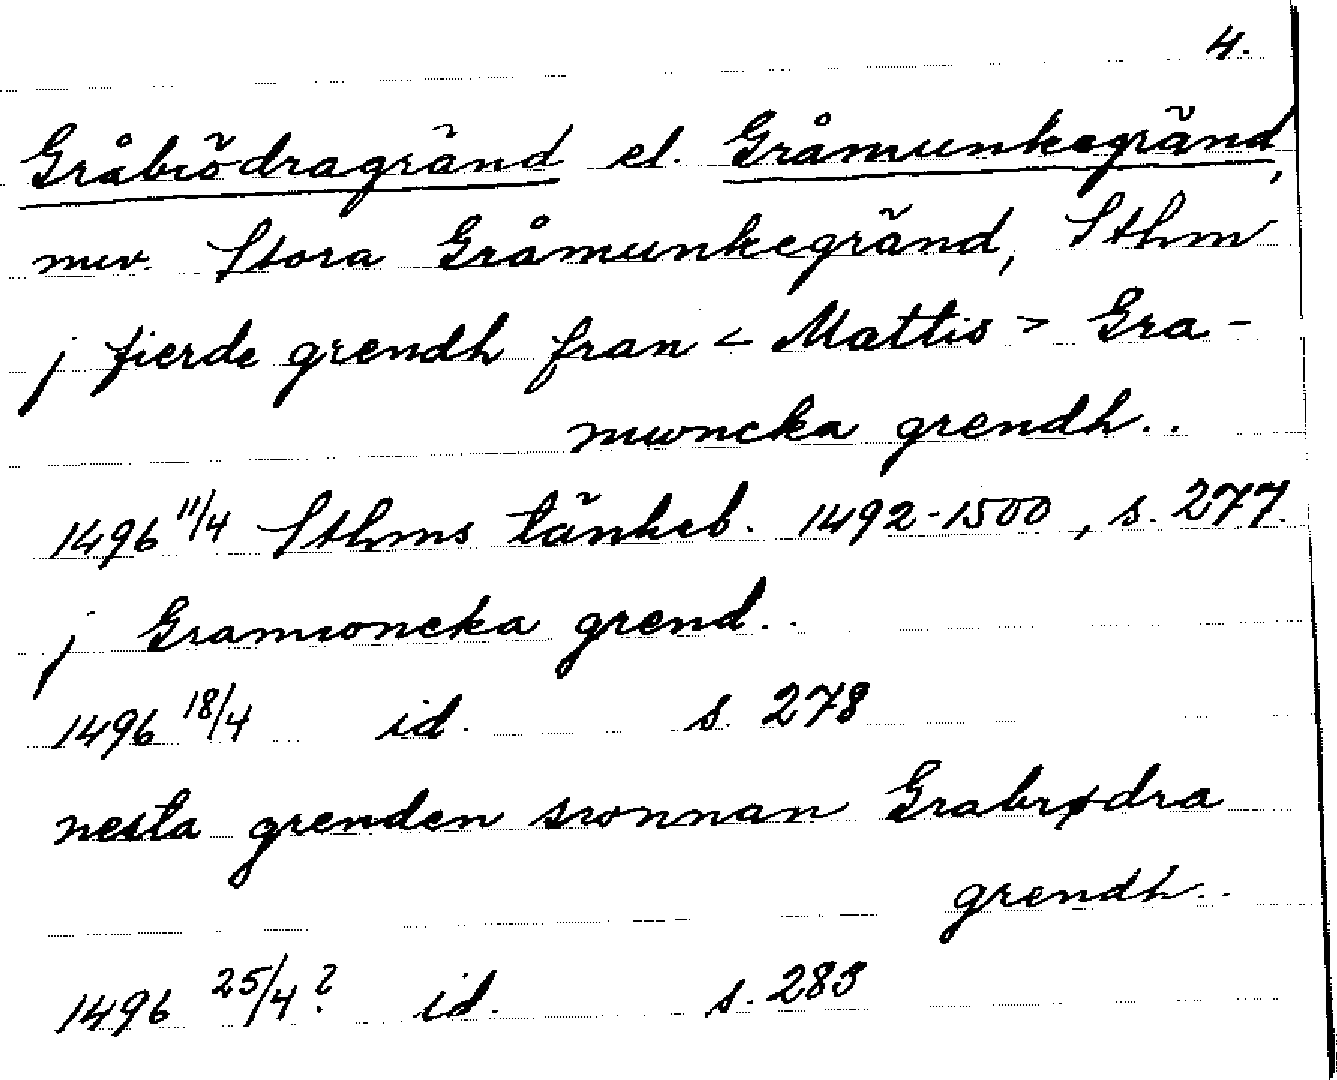 4.
Gråbrödragränd el. Gråmunkegränd,
nuv. Stora Gråmunkegränd, Sthm
j fierde grendh fran < Mattis > Gra-
muncka grendh..
1496 11/4 Sthms tänkeb. 1492-1500, s. 277.
j Gramwncka grend..
1496 18/4 id. s. 278
nesta grenden swnnan Grabrødra
grendh..
1496 25/4? id. s. 283